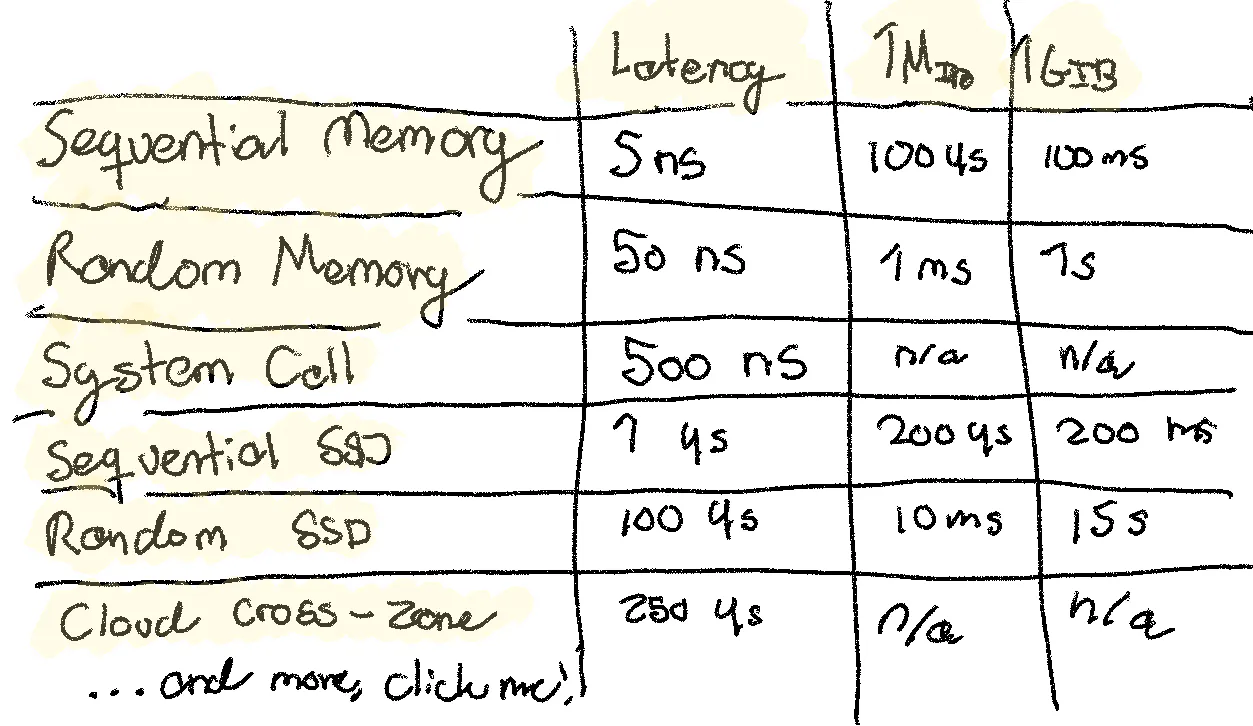 Latency 1MiB 1GIB
Sequential Memory 5 ns 100 μs 100 ms
Random Memory 50 ns 1 ms 1s
System Call 500 ns n/a n/a
Sequential SSD 1 μs 200 μs 200 ms
Random SSD 100 μs 10 ms 15 s
Cloud Cross-Zone 250 μs n/a n/a
... and more, click me!